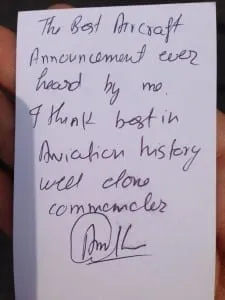 The Best Aircraft
Announcement ever
heard by me.
I think best in
Aviation history
well done
commander